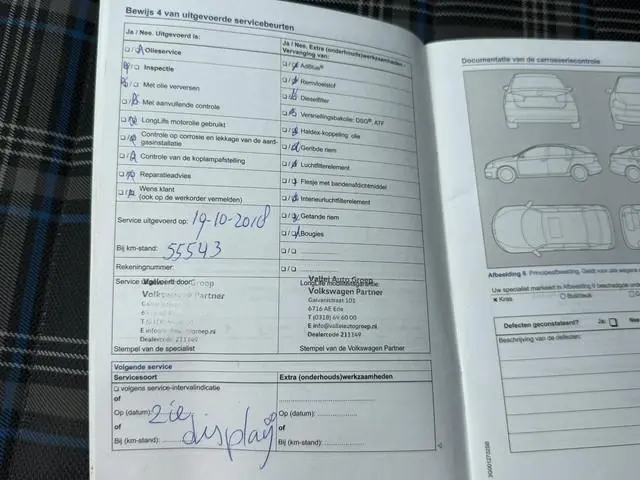 Bewijs 4 van uitgevoerde servicebeurten
Ja / Nee. Uitgevoerd is:
Olieservice
Inspectie
Met olie verversen
Met aanvullende controle
LongLife motorolie gebruikt
Controle op corrosie en lekkage van de aard-
gasinstallatie
Controle van de koplampafstelling
Reparatieadvies
Wens klant
(ook op de werkorder vermelden)
Service uitgevoerd op: 19-10-2018
Bij km-stand: 55543
Rekeningnummer:
Service uitgevoerd door:
Vallei Auto Groep
Volkswagen Partner
E info@valleiautogroep.nl
Dealercode 211149
Stempel van de specialist
Ja / Nee. Extra (onderhouds)werkzaamheden/
Vervanging van:
AdBlue®
Remvloeistof
Dieselfilter
Versnellingsbakolie: DSG®, ATF
Haldex-koppeling olie
Geribde riem
Luchtfilterelement
Flesje met bandenafdichtmiddel
Interieurluchtfilterelement
Getande riem
Bougies
LongLife mobiliteitsgarantie:
Vallei Auto Groep
Volkswagen Partner
Galvanistraat 101
6716 AE Ede
T (0318) 69 60 00
E info@valleiautogroep.nl
Dealercode 211149
Stempel van de Volkswagen Partner
Volgende service
Servicesoort
volgens service-intervalindicatie
of
Op (datum):
of
Bij (km-stand):
zie display
Extra (onderhouds)werkzaamheden
of
Op (datum):
of
Bij (km-stand):
Documentatie van de carrosseriecontrole
Afbeelding 6 Principeafbeelding. Geldt voor alle
Uw specialist markeert in Afbeelding 6 beschadigde
× Kras
Defecten geconstateerd? Ja:
Beschrijving van de defecten: